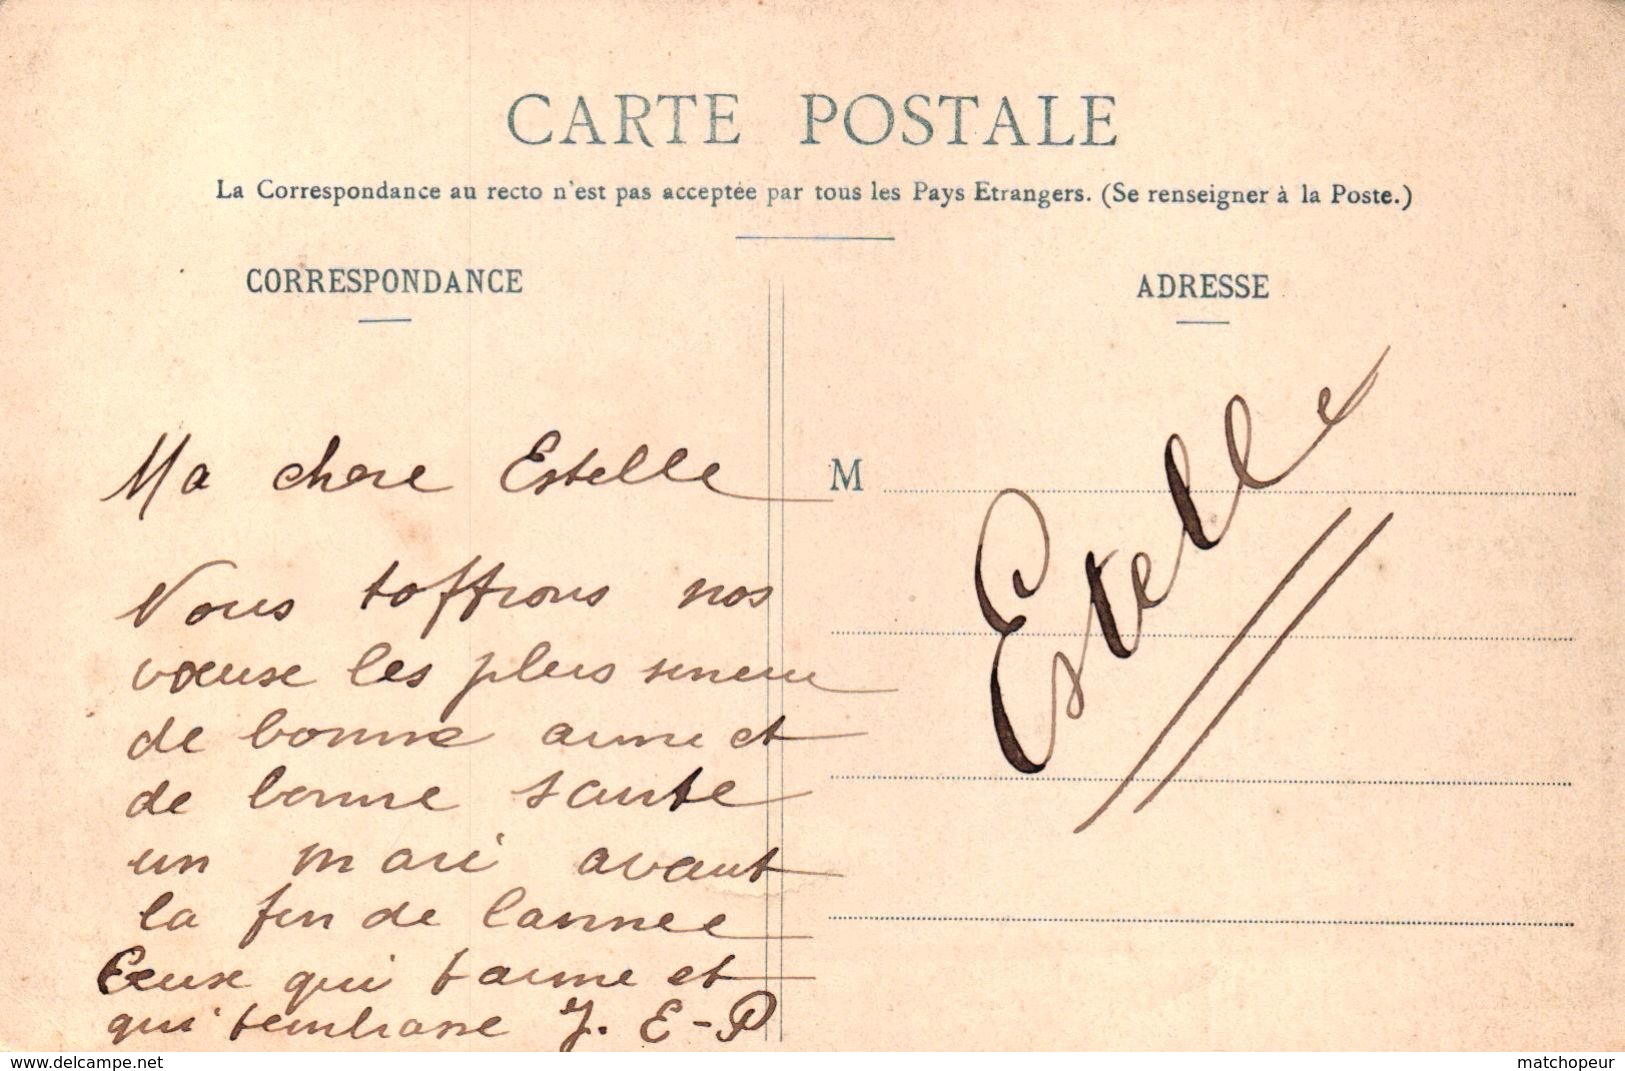 CARTE POSTALE
La Correspondance au recto n'est pas acceptée par tous les Pays Etrangers. (Se renseigner à la Poste.)
CORRESPONDANCE
ADRESSE
Ma chere Estelle
Nous toffrons nos
vœuse les plus
de bonne anne et
de bonne sante
un mari avant
la fin de lannee
Ceuse qui taime et
qui tembrasse J. E-P
M
Estelle
www.delcampe.net
matchopeur